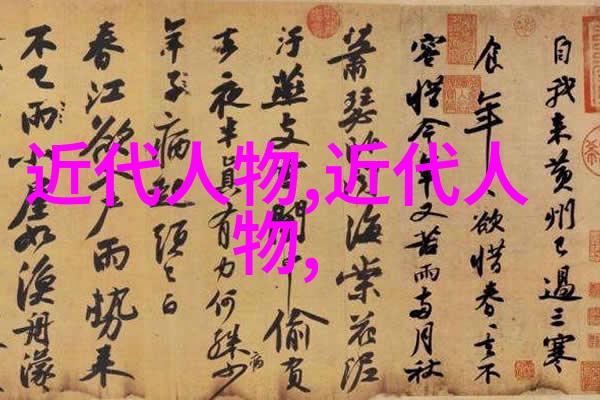 近代人物,近代人
物,
自我来黄州已過三寒
食年、欲惜春、去不
容惜今年又苦雨兩月秋
蕭瑟卧聞海棠花泥
汙燕支雪闇中偷負
去夜半真有力何殊少病
年子病起頭已白
春江欲入户雨勢来
不已雨小屋如漁舟濛